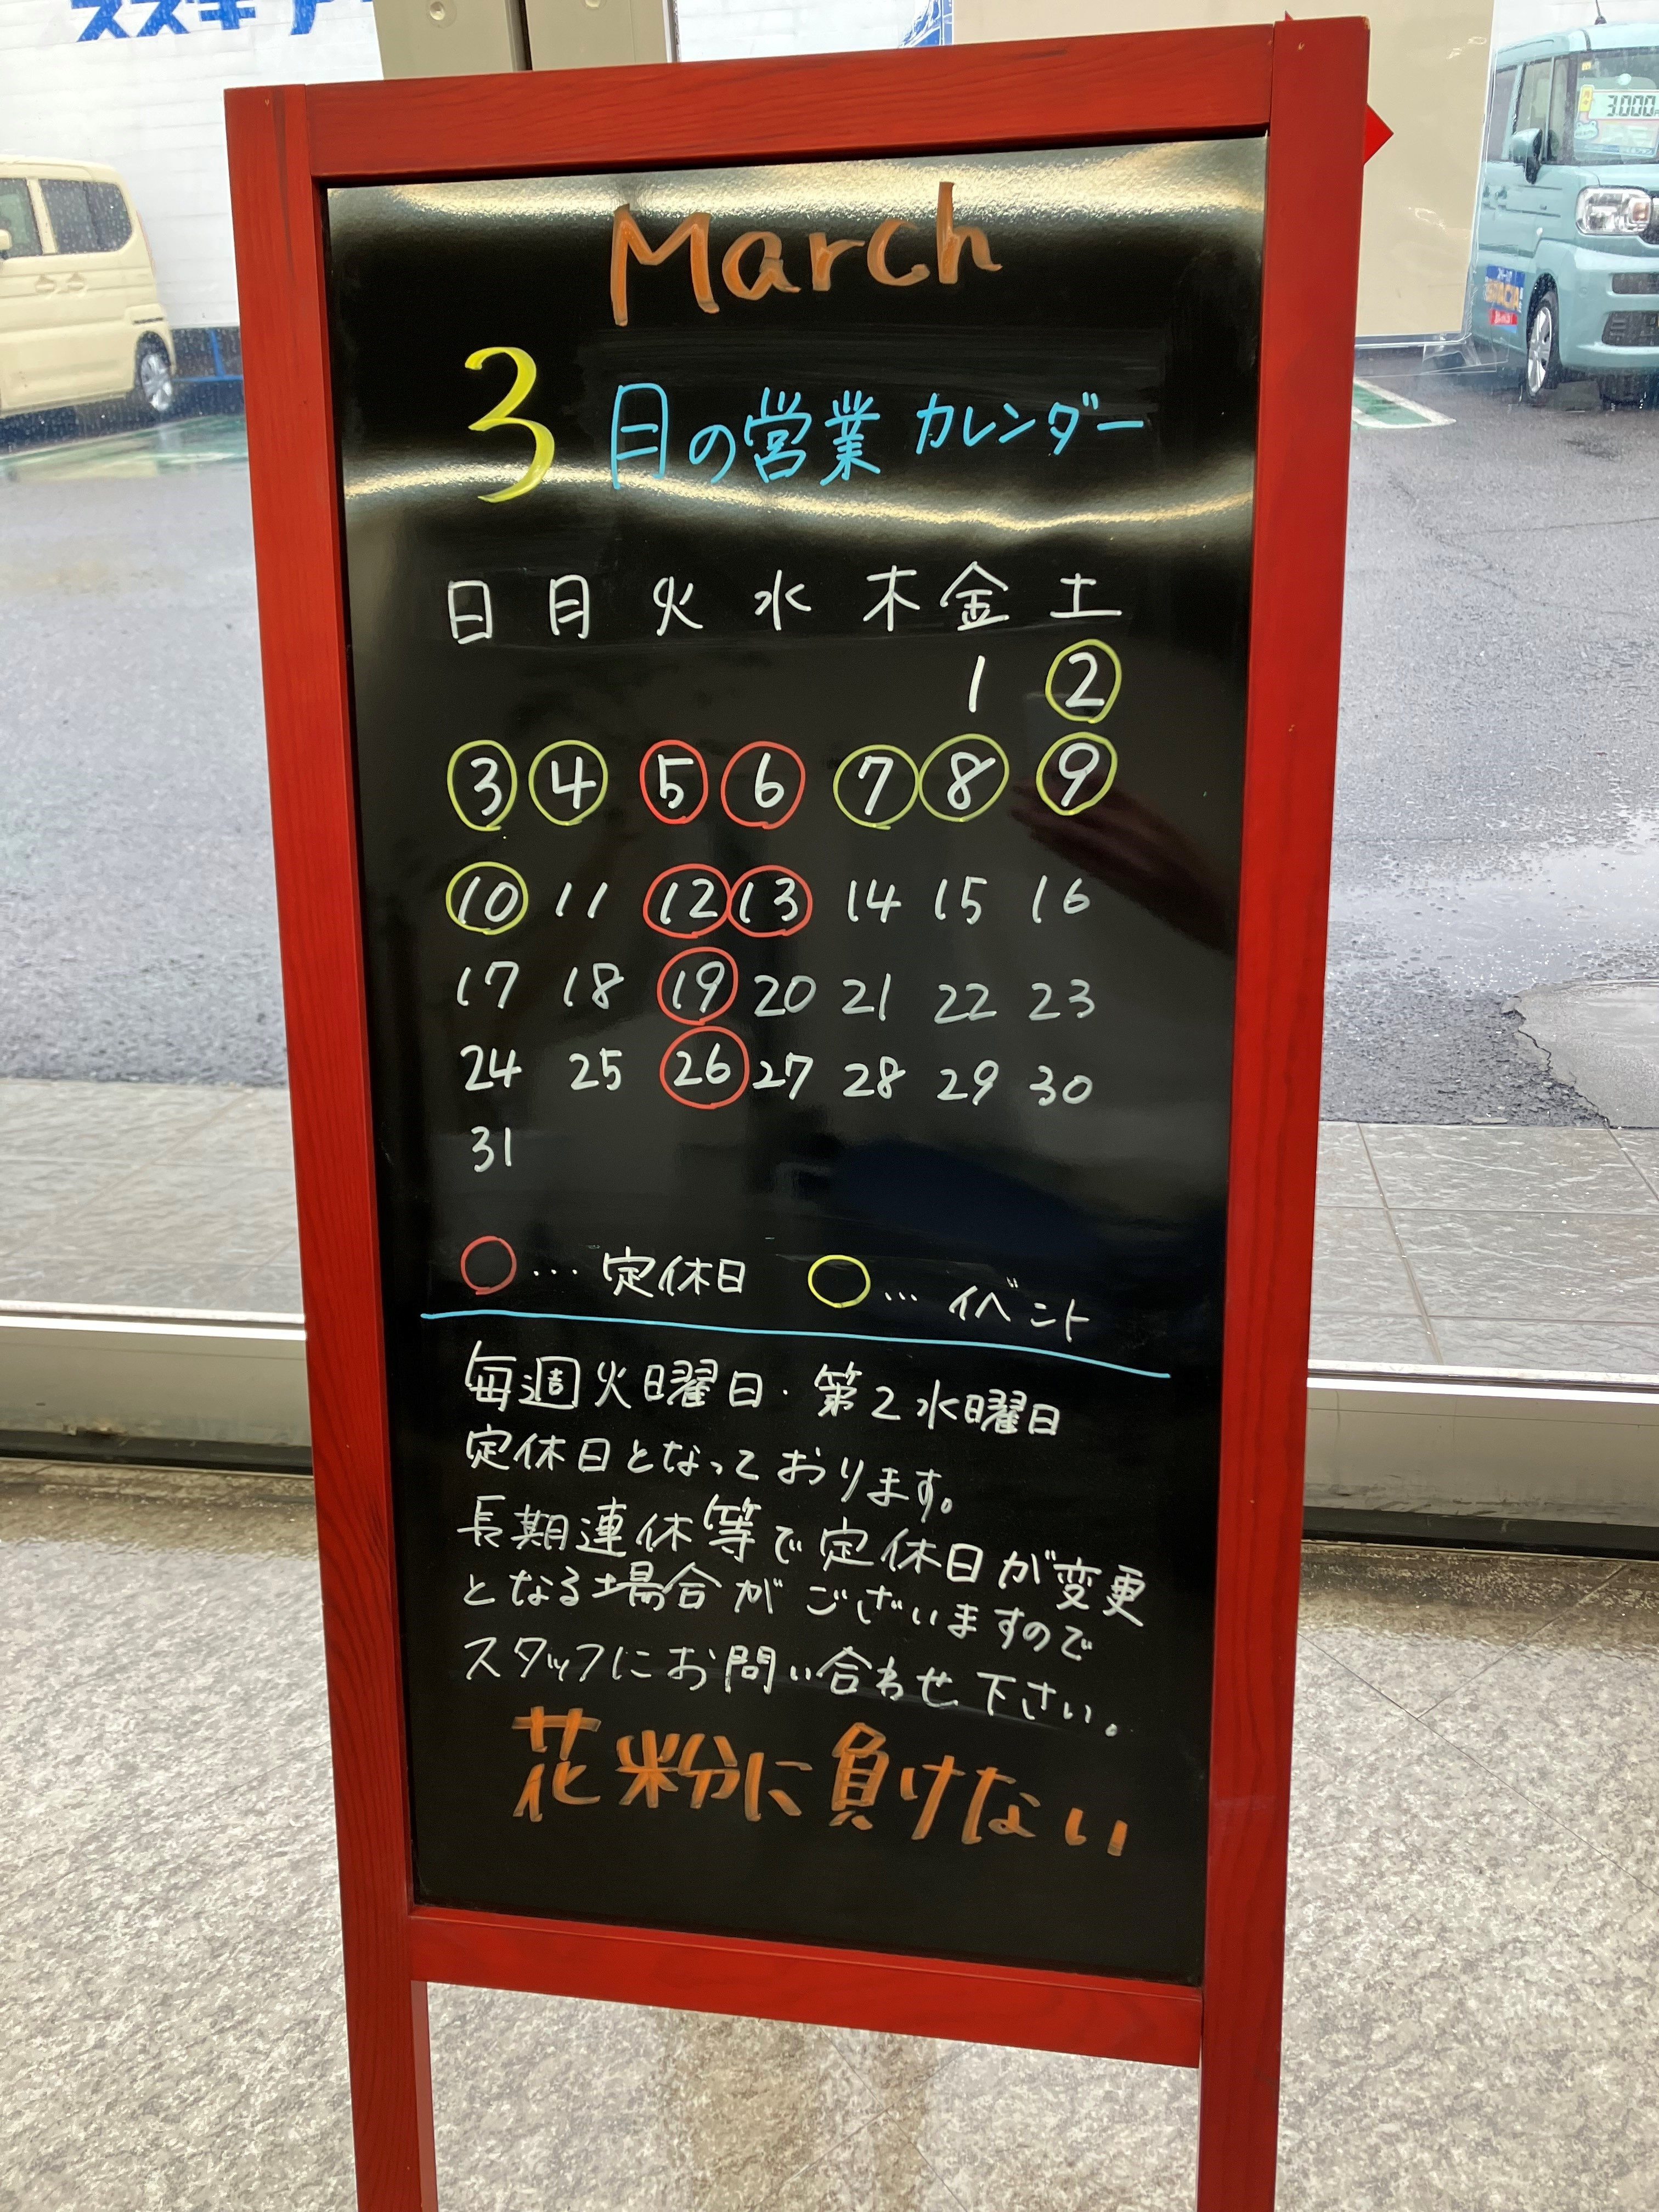 スズキ
3,000
March
3月の営業カレンダー
日 月 火 水 木 金 土
1 2
3 4 5 6 7 8 9
10 11 12 13 14 15 16
17 18 19 20 21 22 23
24 25 26 27 28 29 30
31
○… 定休日 ○… イベント
毎週火曜日・第2水曜日
定休日となっております。
長期連休等で定休日が変更
となる場合がございますので
スタッフにお問い合わせ下さい。
花粉に負けない